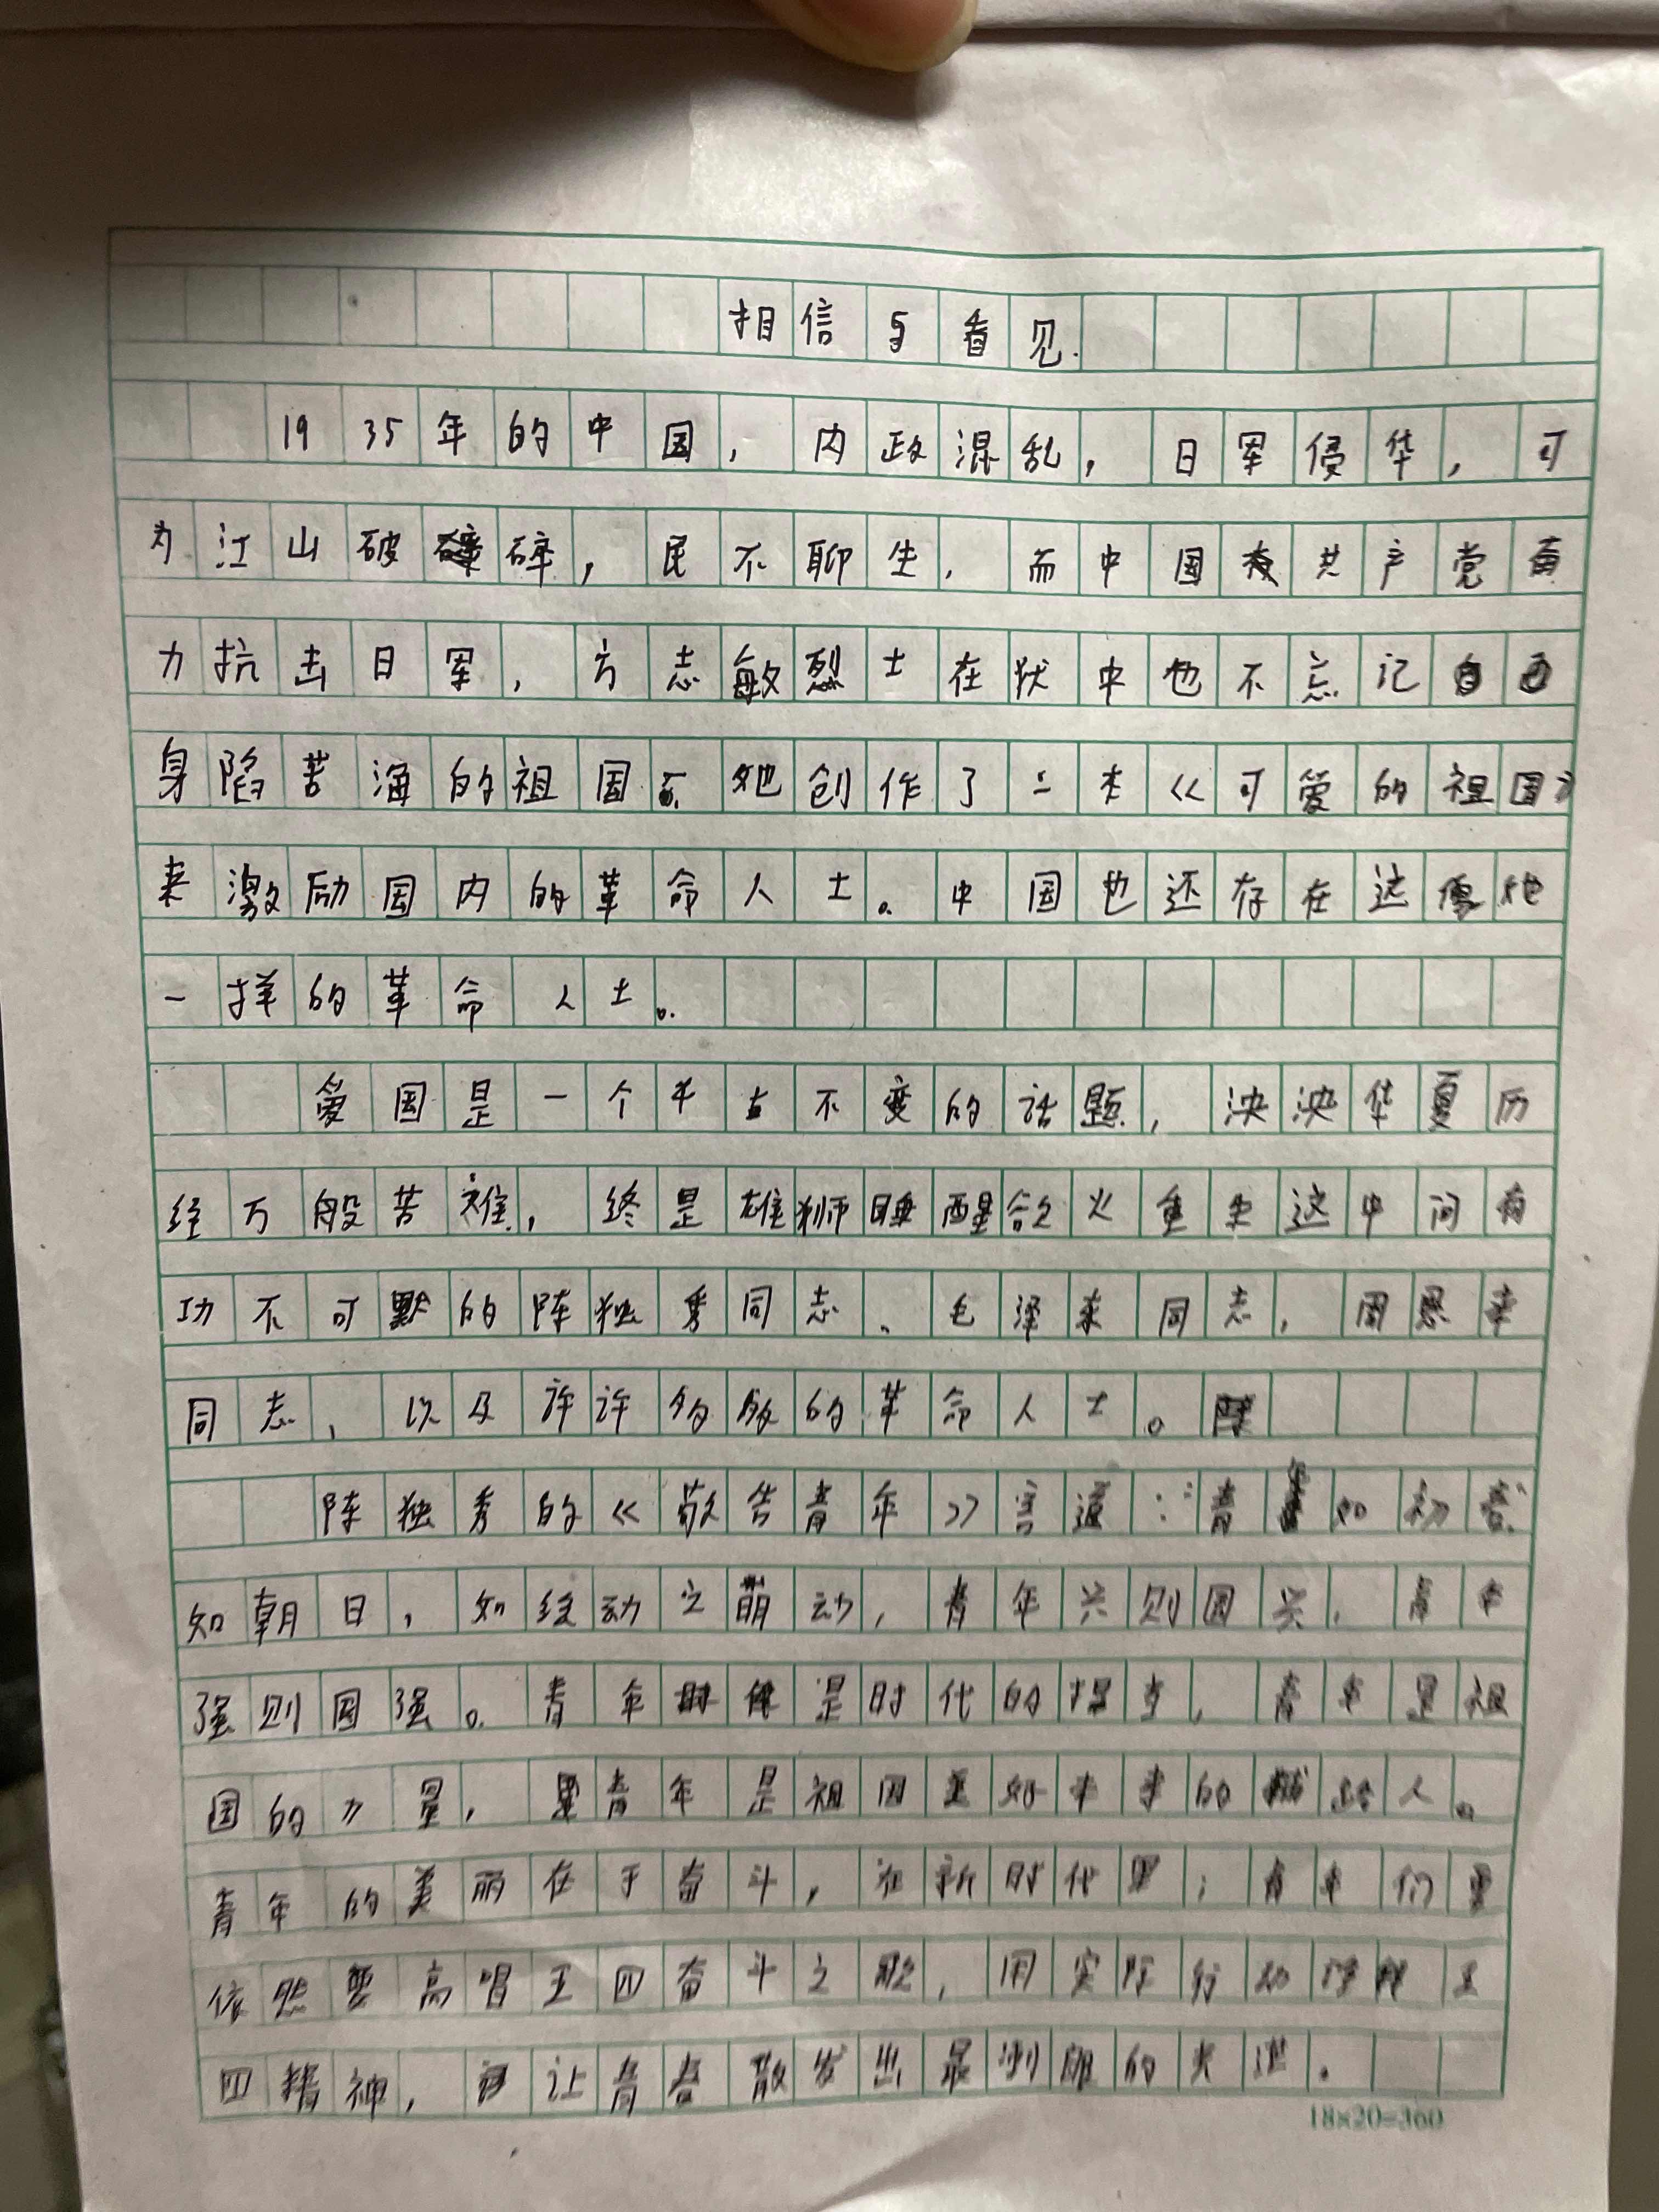 相信与看见.
1935年的中国，内政混乱，日军侵华，可
为江山破碎，民不聊生，而中国共产党奋
力抗击日军，方志敏烈士在狱中也不忘记自己
身陷苦海的祖国，他创作了一本《可爱的祖国》
来激励国内的革命人士。中国也还存在这像他
一样的革命人士。
爱国是一个千古不变的话题，泱泱华夏历
经万般苦难，终是雄狮睡醒欲火重生这中间有
功不可默的陈独秀同志、毛泽东同志，周恩来
同志，以及许许多多的革命人士。
陈独秀的《敬告青年》言道：“青年如初春
如朝日，如经动之萌动，青年兴则国兴，青年
强则国强。青年是时代的担当，青年是祖
国的力量，青年是祖国美好未来的人。
青年的美丽在于奋斗，在新时代里，青年们要
依然要高唱五四奋斗之歌，用实际行动诠释五
四精神，让青春散发出最绚丽的光芒。
18×20=360